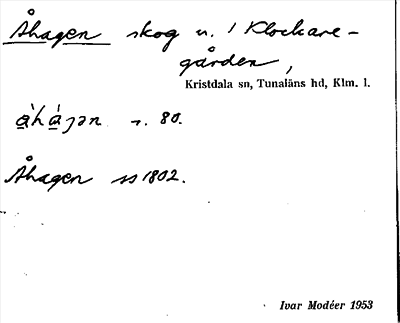 Åhagen skog u. 1 Klockare-
gården,
Kristdala sn, Tunaläns hd, Klm. l.
a̱̍hа́ȷən r. 80.
Åhagen ss 1802.
Ivar Modéer 1953